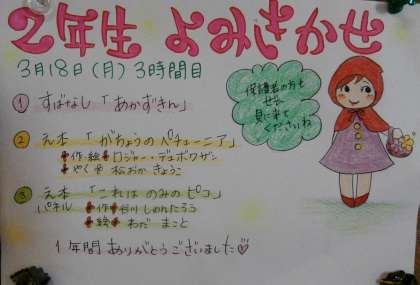 2年生 よみきかせ
3月18日(月) 3時間目
保護者の方も
ぜひ
見に来て
くださいね
① すばなし「あかずきん」
② えほん「がちょうのペチューニア」
作・絵 ロジャー・デュボワザン
やく 松おか きょうこ
③ えほん「これは のみのピコ」
パネル 作 谷川 しゅんたろう
絵 わだ まこと
1年間 ありがとうございました♡